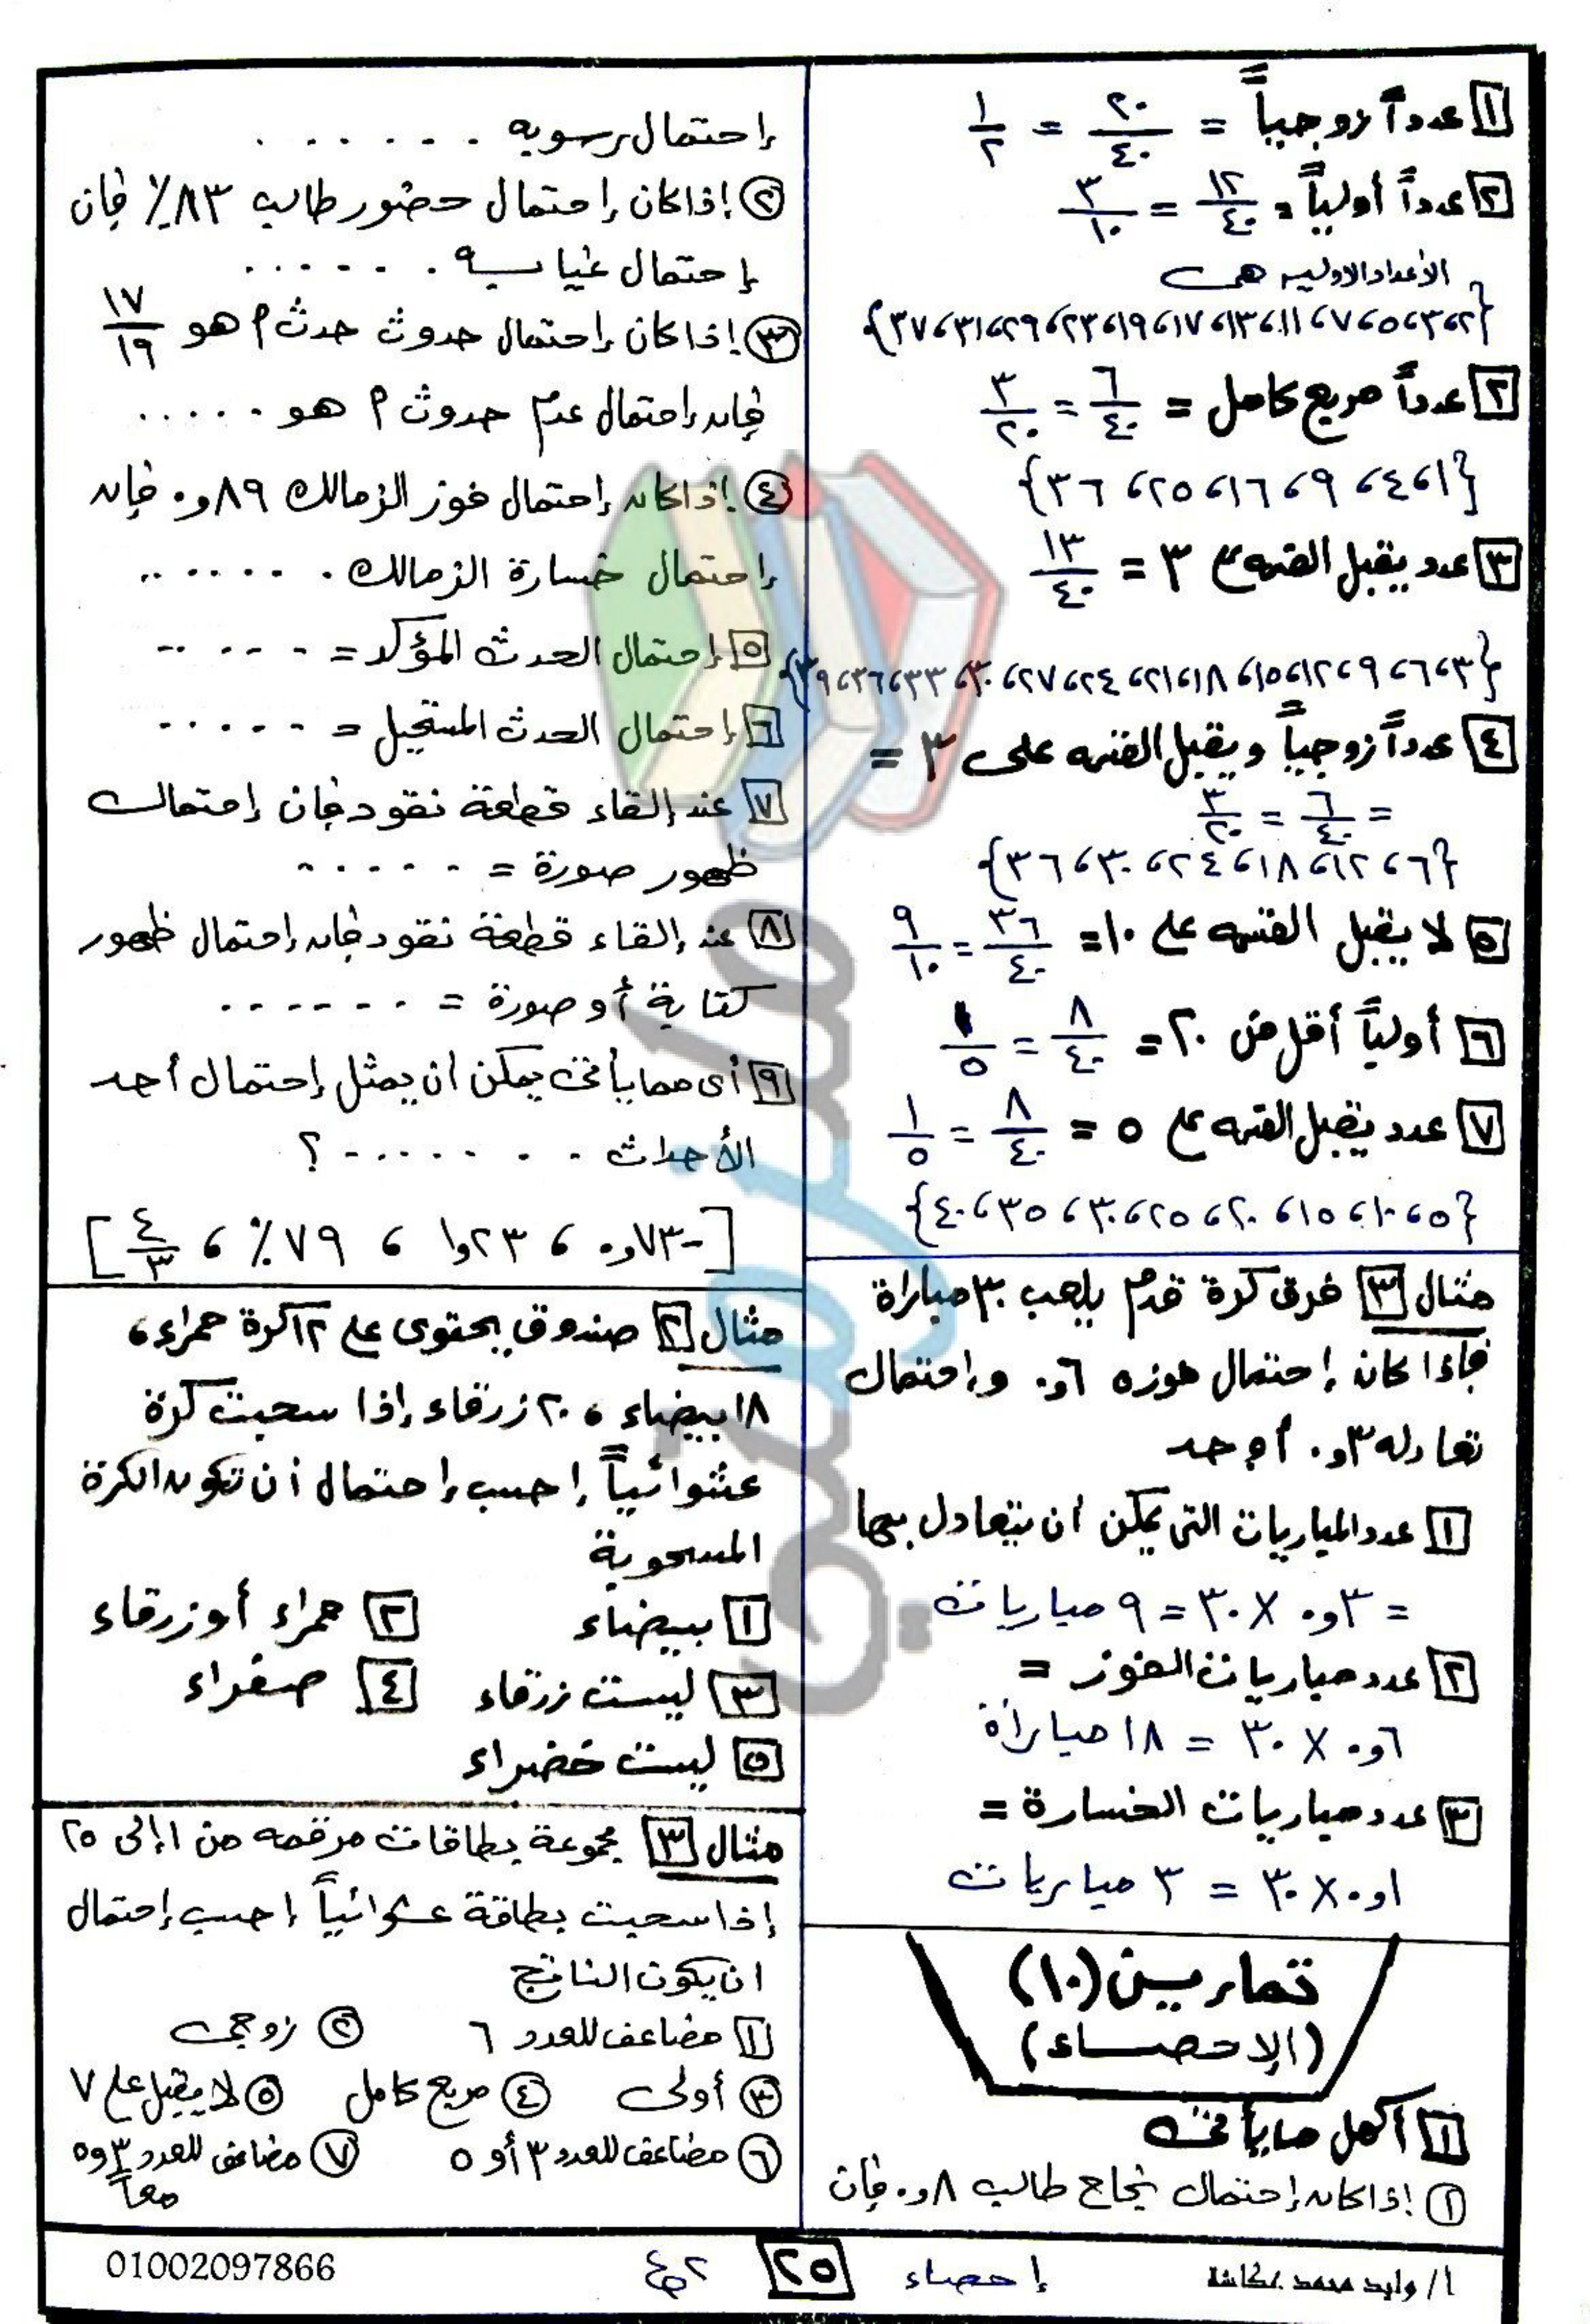 ١ عدداً زوجياً = ٢٠/٤٠ = ١/٢
٢ عدداً أولياً = ١٢/٤٠ = ٣/١٠
الأعداد الاوليه هى
{٢،٣،٥،٧،١١،١٣،١٧،١٩،٢٣،٢٩،٣١،٣٧}
٢ عدداً مربع كامل = ٦/٤٠ = ٣/٢٠
{١،٤،٩،١٦،٢٥،٣٦}
٣ عدد يقبل القسمه ع ٣ = ١٣/٤٠
{٣،٦،٩،١٢،١٥،١٨،٢١،٢٤،٢٧،٣٠،٣٣،٣٦،٣٩}
٤ عدداً زوجياً ويقبل القسمه على ٣ =
= ٦/٤٠ = ٣/٢٠
{٦،١٢،١٨،٢٤،٣٠،٣٦}
٥ لا يقبل القسمه على ١٠ = ٣٦/٤٠ = ٩/١٠
٦ أولياً أقل من ٢٠ = ٨/٤٠ = ١/٥
٧ عدد يقبل القسمه ع ٥ = ٨/٤٠ = ١/٥
{٥،١٠،١٥،٢٠،٢٥،٣٠،٣٥،٤٠}
مثال ٣ فرق كرة قدم يلعب ٣٠ مباراة
فإذا كان إحتمال فوزه ٦و٠ وإحتمال
تعادله ٣و٠ أوجد
١ عدد المباريات التى يمكن أن يتعادل بها
= ٣و٠ × ٣٠ = ٩ مباريات
٢ عدد مباريات الفوز =
٦و٠ × ٣٠ = ١٨ مباراة
٣ عدد مباريات الخسارة =
١و٠ × ٣٠ = ٣ مباريات
تمارين (١٠)
(الإحصاء)
١ أكمل ما يأتى
١ إذا كان إحتمال نجاح طالب ٨و٠ فإن
إحتمال رسوبه . . . . . .
٢ إذا كان إحتمال حضور طالب ٨٣٪ فإن
إحتمال غيابه . . . . . .
٣ إذا كان إحتمال حدوث حدث م هو ١٧/١٩
فإن إحتمال عدم حدوث م هو . . . . .
٤ إذا كان إحتمال فوز الزمالك ٨٩و٠ فإن
إحتمال خسارة الزمالك . . . . . . .
٥ إحتمال الحدث المؤكد = - - - - -
٦ إحتمال الحدث المستحيل = - - - - -
٧ عند إلقاء قطعة نقود فإن إحتمال
ظهور صورة = - - - - -
٨ عند إلقاء قطعة نقود فإن إحتمال ظهور
كتابة أو صورة = - - - - - -
٩ أى مما يأتى يمكن أن يمثل إحتمال أحد
الأحداث - - - - - - - ؟
[-٧٣و٠ ، ٢٣و١ ، ٧٩٪ ، ٤/٣]
مثال ٢ صندوق يحتوى على ١٢ كرة حمراء،
١٨ بيضاء ، ٢٠ زرقاء إذا سحبت كرة
عشوائياً إحسب إحتمال أن تكون الكرة
المسحوبة
١ بيضاء ٢ حمراء أو زرقاء
٣ ليست زرقاء ٤ صفراء
٥ ليست خضراء
مثال ٣ مجموعة بطاقات مرقمه من ١ إلى ٢٥
إذا سحبت بطاقة عشوائياً إحسب إحتمال
ان يكون الناتج
١ مضاعف للعدد ٦ ٢ زوجى
٣ أولى ٤ مربع كامل ٥ لا يقبل على ٧
٦ مضاعف للعدد ٣ أو ٥ ٧ مضاعف للعدد ٣ و٥
معاً
أ/ وليد محمد عكاشة إحصاء ٢٥ ٢ع 01002097866